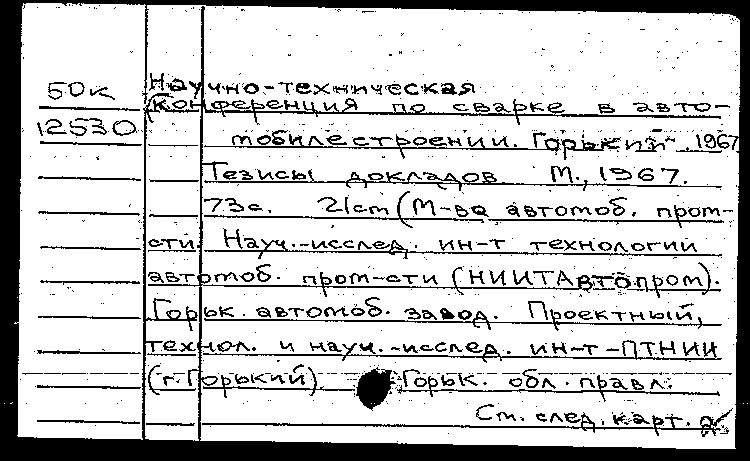 Научно-техническая
50к (конференция по сварке в авто-
12530 мобилестроении. Горький. 1967
Тезисы докладов М., 1967.
73с. 21cm (М-во автомоб. пром-
сти. Науч.-исслед. ин-т технологии
автомоб. пром-сти (НИИТАвтопром).
Горьк. автомоб. завод. Проектный,
технол. и науч.-исслед. ин-т-ПТНИИ
(г.Горький) Горьк. обл. правл.
См. след. карт.